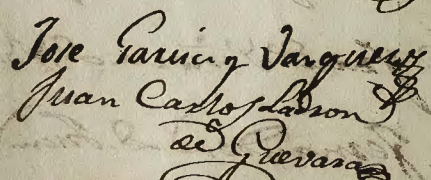 Jose Garcia y Varquez
Juan Carlos Ladron
de Guevara